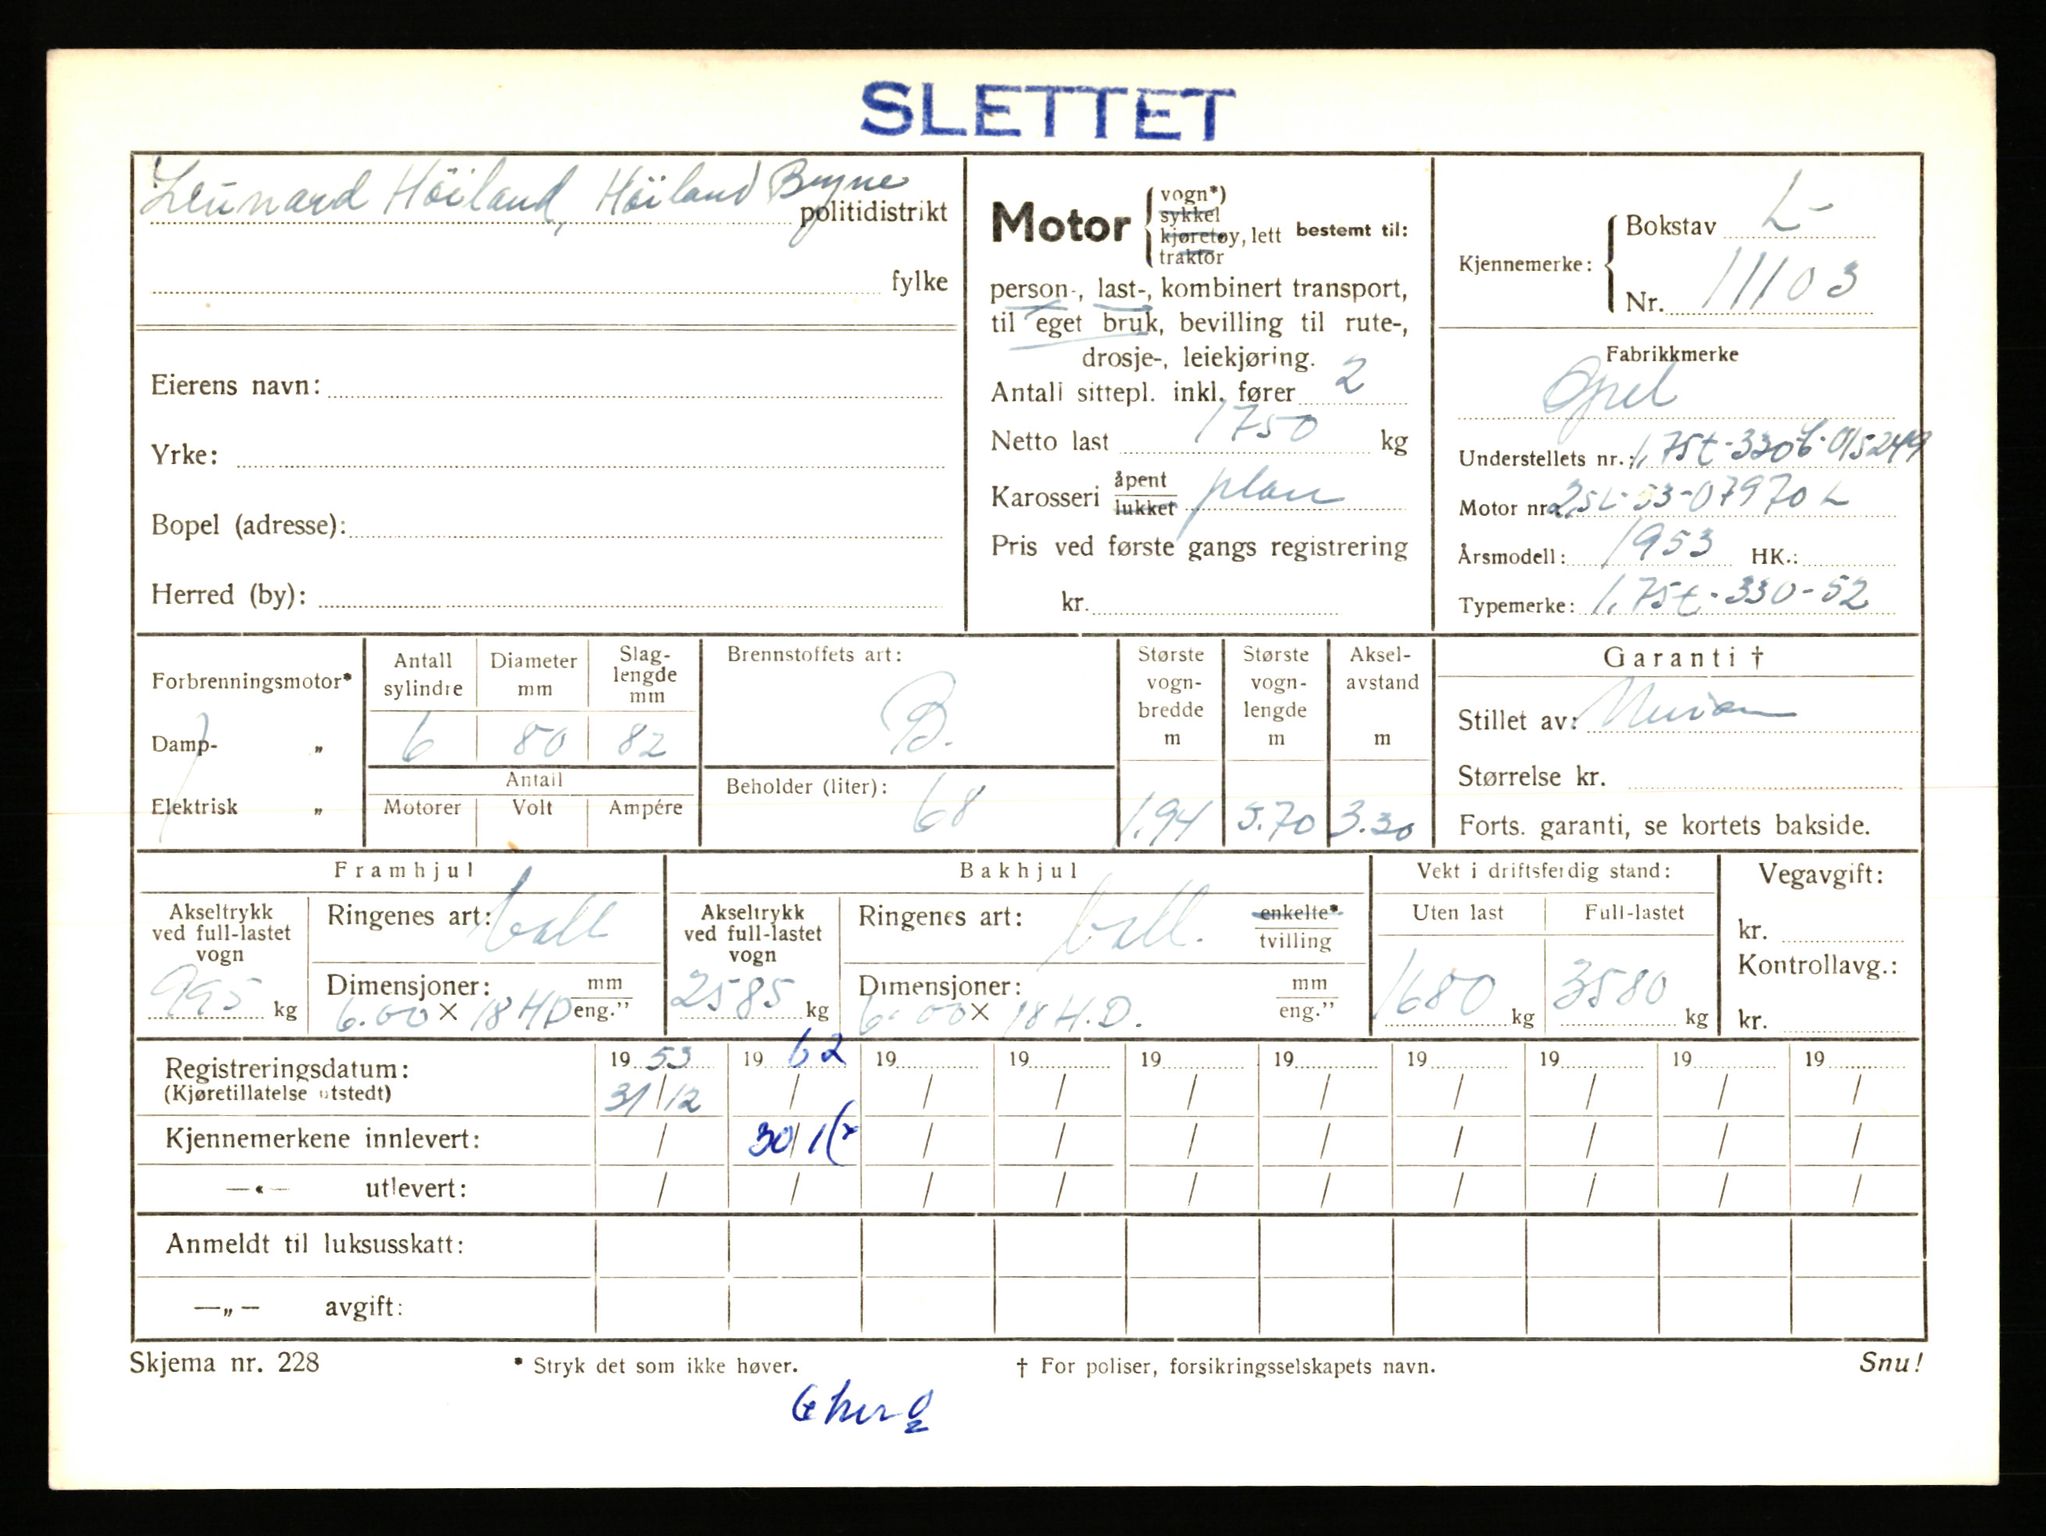 SLETTET
Leunard Höiland, Höiland Bryne
politidistrikt
fylke
Eierens navn:
Yrke:
Bopel (adresse):
Herred (by):
Motor { vogn*) sykkel kjøretøy, lett traktor bestemt til:
person-, last-, kombinert transport,
til eget bruk, bevilling til rute-,
drosje-, leiekjøring.
Antall sittepl. inkl. fører 2
Netto last 1750 kg
Karosseri åpent lukket plan
Pris ved første gangs registrering
kr.
Kjennemerke: { Bokstav L-
Nr. 11103
Fabrikkmerke
Opel
Understellets nr.: 1,75t-330 L-015249
Motor nr. 2,5L-53-07970 L
Årsmodell: 1953 HK.:
Typemerke: 1,75t-330-52
Forbrenningsmotor*
Damp- „
Elektrisk „
Antall sylindre Diameter mm Slaglengde mm
6 80 82
Antall
Motorer Volt Ampére
Brennstoffets art:
B.
Beholder (liter):
68
Største vogn-bredde m Største vogn-lengde m Aksel-avstand m
1.94 5.70 3.30
Garanti †
Stillet av:
Størrelse kr.
Forts. garanti, se kortets bakside.
Framhjul
Akseltrykk ved full-lastet vogn
995 kg
Ringenes art: ball
Dimensjoner: mm eng.”
6.00 X 18 HD
Bakhjul
Akseltrykk ved full-lastet vogn
2585 kg
Ringenes art: ball. enkelte* tvilling
Dimensjoner: mm eng.”
6.00 X 18 H.D.
Vekt i driftsferdig stand:
Uten last Full-lastet
1680 kg 3580 kg
Vegavgift:
kr.
Kontrollavg.:
kr.
Registreringsdatum: 19 53 19 62 19 19 19 19 19 19 19 19
(Kjøretillatelse utstedt) 31/12 / / / / / / / / /
Kjennemerkene innlevert: / 30/1 / / / / / / / /
—«— utlevert: / / / / / / / / / /
Anmeldt til luksusskatt:
—„— avgift:
Skjema nr. 228 * Stryk det som ikke høver. † For poliser, forsikringsselskapets navn. Snu!